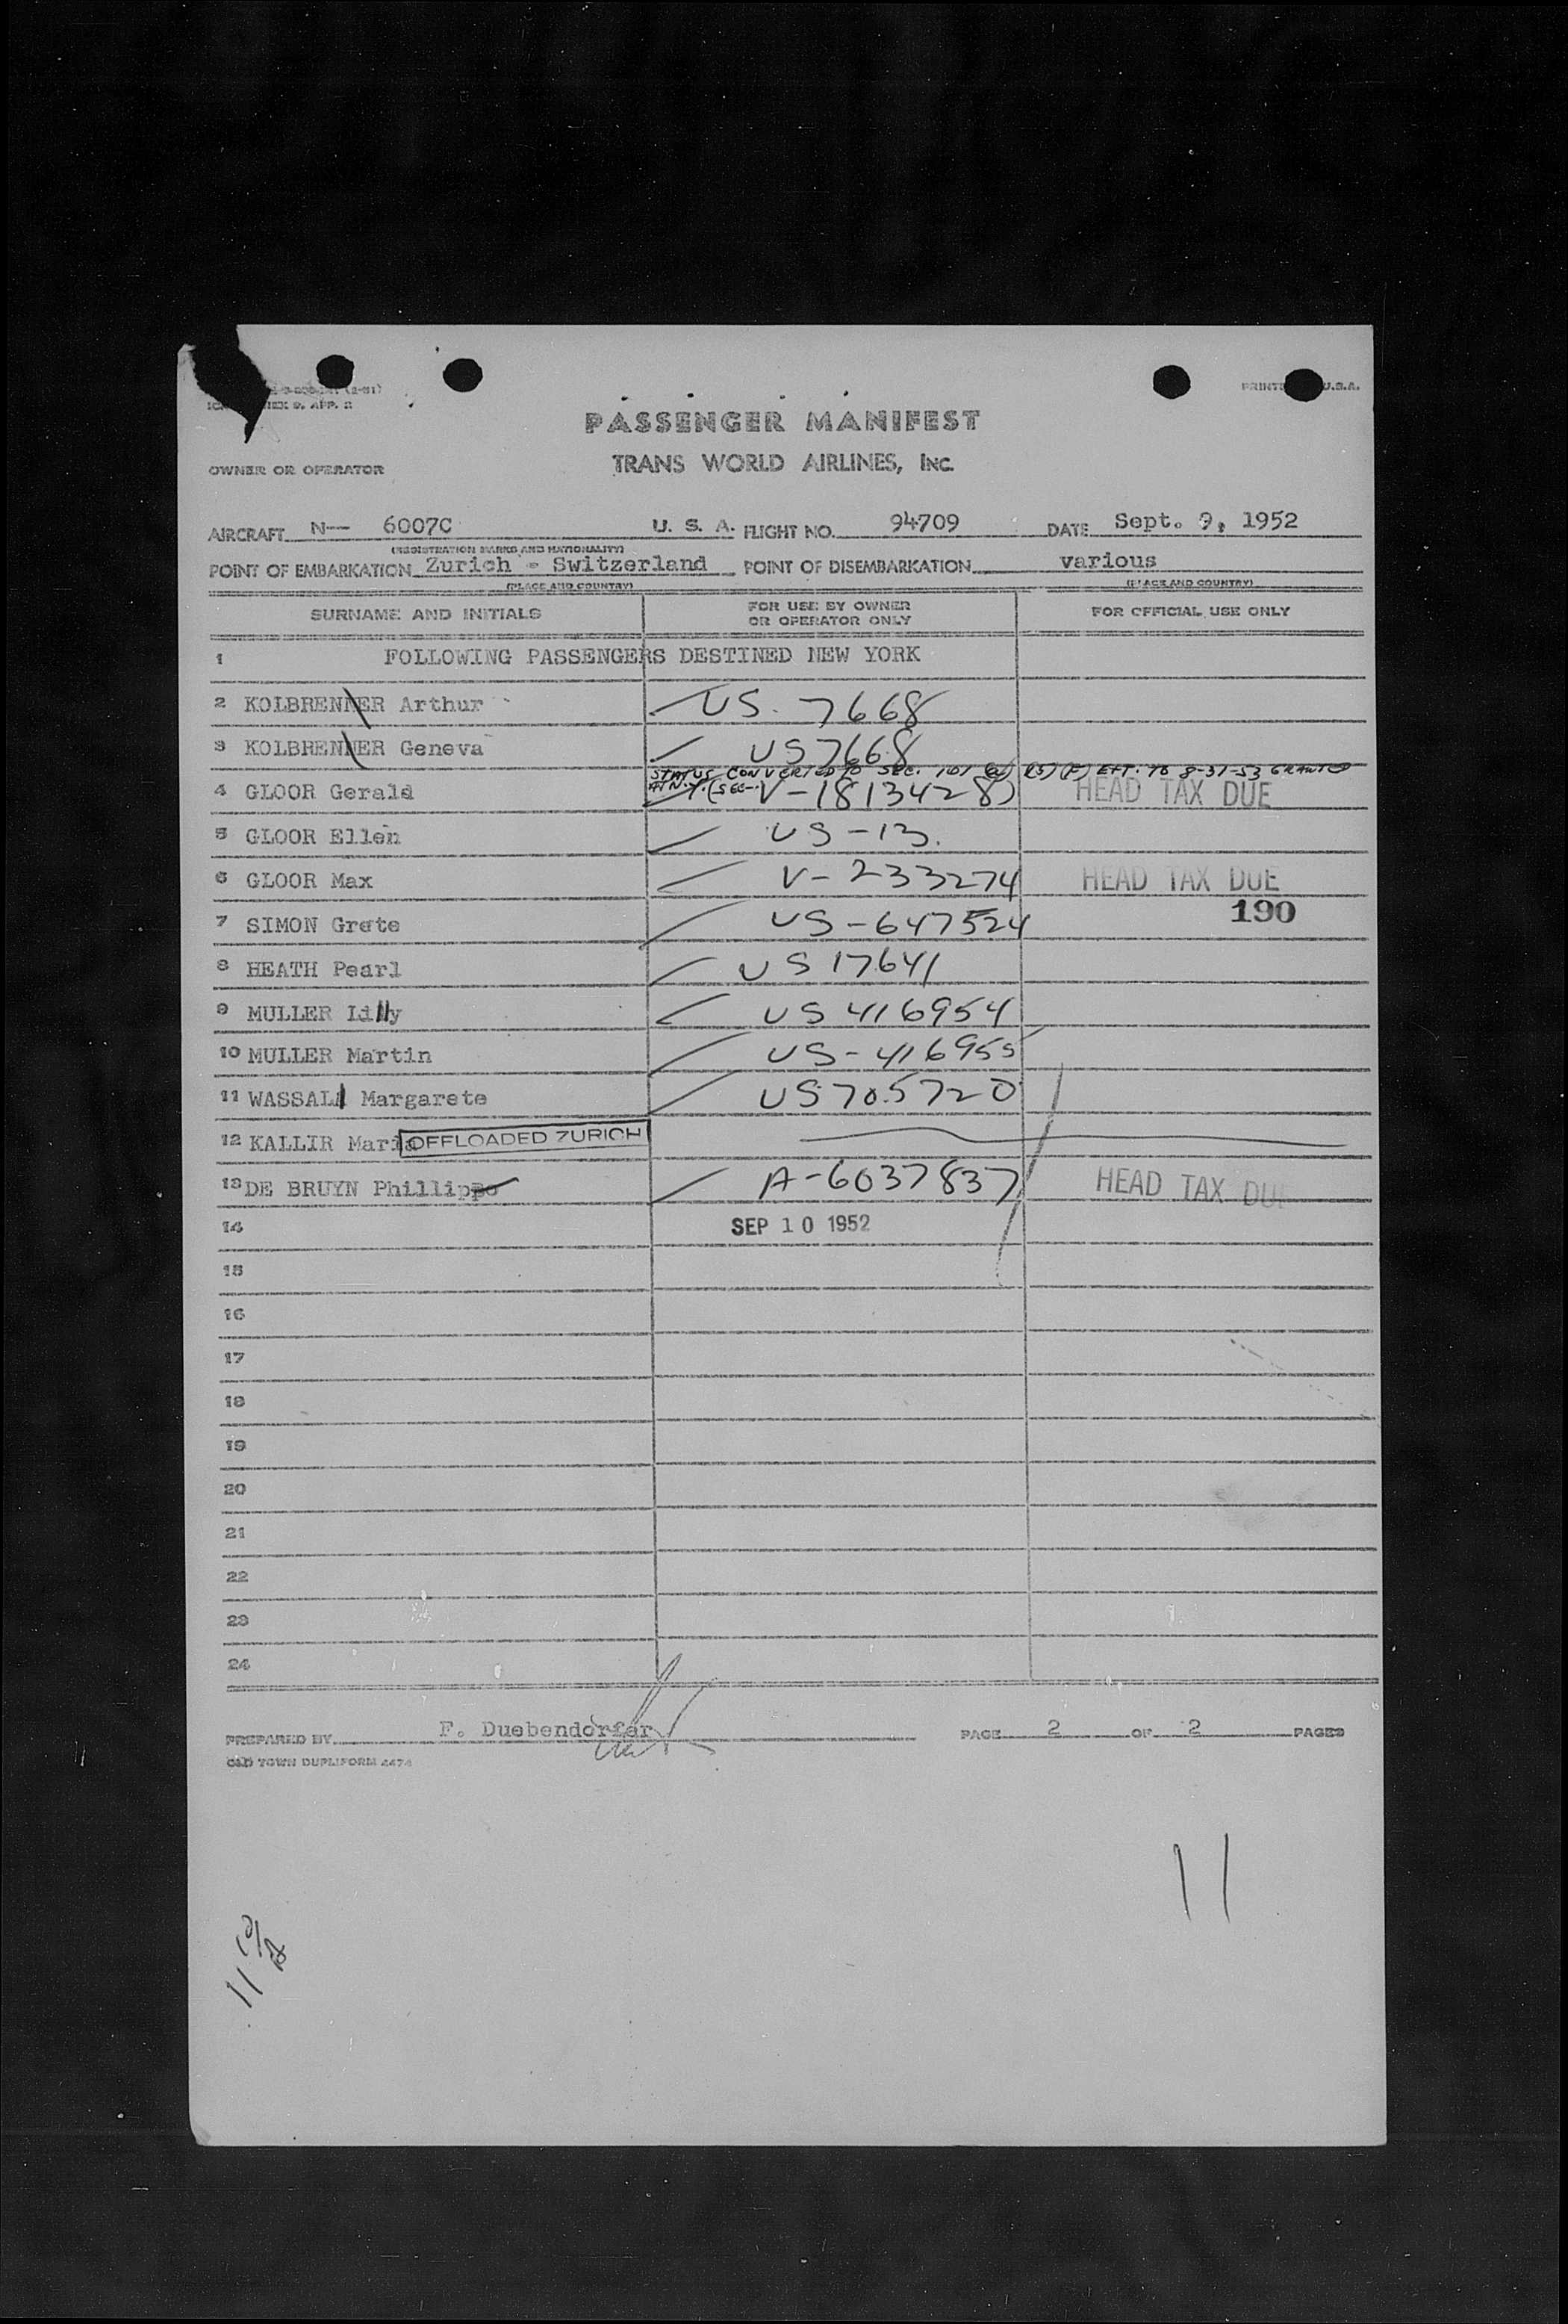 (2-51)
APP. 2
PRINTED U.S.A.
PASSENGER MANIFEST
OWNER OR OPERATOR TRANS WORLD AIRLINES, INC.
AIRCRAFT N-- 6007C U. S. A. FLIGHT NO. 94709 DATE Sept. 9, 1952
(REGISTRATION MARKS AND NATIONALITY)
POINT OF EMBARKATION Zurich - Switzerland POINT OF DISEMBARKATION various
(PLACE AND COUNTRY) (PLACE AND COUNTRY)
SURNAME AND INITIALS FOR USE BY OWNER OR OPERATOR ONLY FOR OFFICIAL USE ONLY
1 FOLLOWING PASSENGERS DESTINED NEW YORK
2 KOLBRENNER Arthur US. 7668
3 KOLBRENNER Geneva US 7668
STATUS CONVERTED TO SEC. 101 (a) (15) (F) EFF. TO 8-31-53 GRANTED
4 GLOOR Gerald AT N.Y. (SEC- V-1813428) HEAD TAX DUE
5 GLOOR Ellen US-13.
6 GLOOR Max V-233274 HEAD TAX DUE
7 SIMON Grete US-647524 190
8 HEATH Pearl US 17641
9 MULLER Lilly US 416954
10 MULLER Martin US-416955
11 WASSALL Margarete US 705720
12 KALLIR Maria OFFLOADED ZURICH
13 DE BRUYN Phillippo A-6037837 HEAD TAX DUE
14 SEP 10 1952
15
16
17
18
19
20
21
22
23
24
PREPARED BY F. Duebendorfer PAGE 2 OF 2 PAGES
OLD TOWN DUPLIFORM 4474
11
11